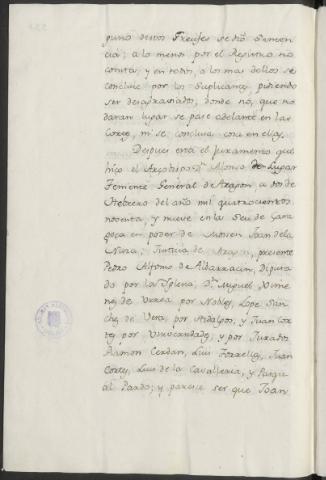 guno destos Greuges se dió Senten
cia; a lo menos por el Registro no
consta; y en todos, a los mas dellos se
concluie por los Suplicantes pidiendo
ser desagraviados, donde no, que no
daran lugar se pase adelante en las
Cortes, ni se concluia cosa en ellas.
Despues está el juramento que
hizo el Arzobispo Dn. Alonso de Lugar
Teniente General de Aragon a dos de
Hebrero del año mil quatrocientos
noventa, y nueve en la Seu de Zara
goza en poder de Mossen Juan de la
Nuza; Justicia de Aragon, presente
Pedro Alfonso de Albarracin, Diputa
do por la Iglesia, Dn. Miguel Xime
nez de Urrea por Nobles, Lope Sán
chez de Vera, por Hidalgos, y Juan Cor
tes por Universidades, y por Jurados
Ramon Cerdan, Luis Torrellas, Juan
Cortes, Luis de la Cavalleria, y
al Pardo; y pareze ser que Joan